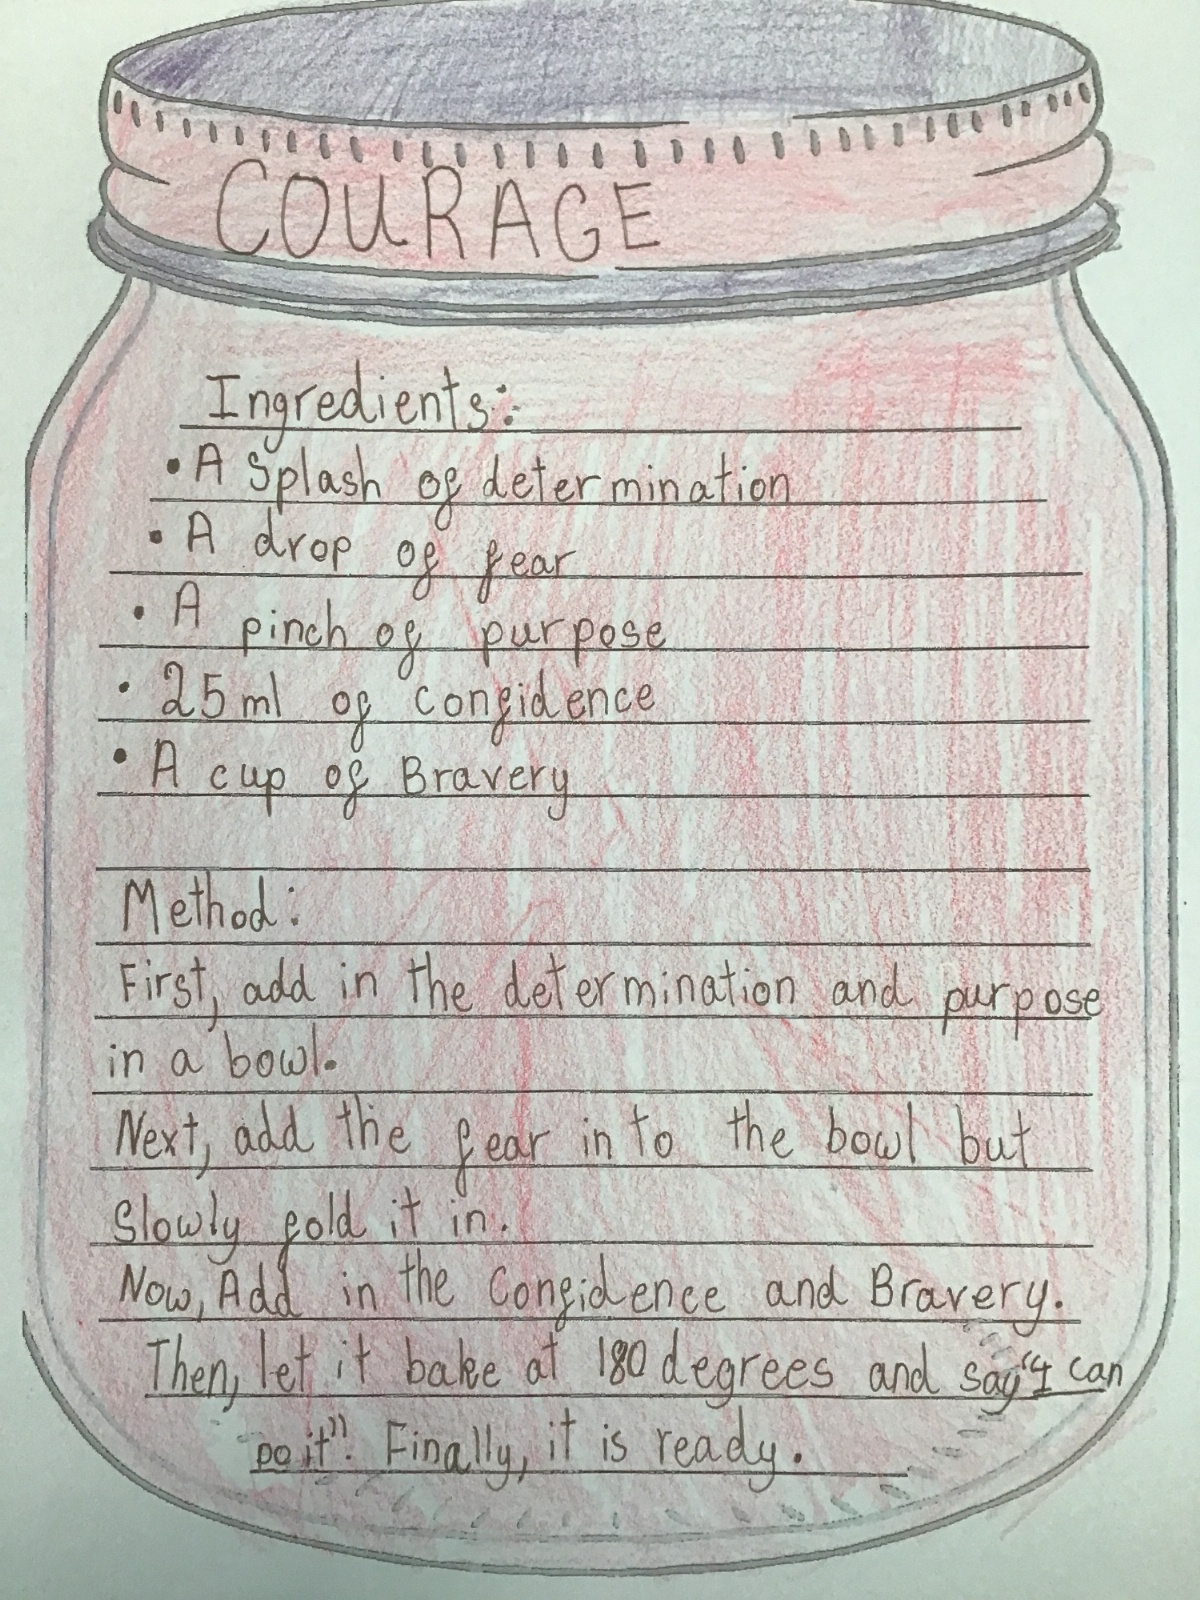 COURAGE
Ingredients:
• A Splash of determination
• A drop of fear
• A pinch of purpose
• 25 ml of confidence
• A cup of Bravery
Method:
First, add in the determination and purpose
in a bowl.
Next, add the fear in to the bowl but
Slowly fold it in.
Now, Add in the Confidence and Bravery.
Then, let it bake at 180 degrees and say "I can
Do it". Finally, it is ready.